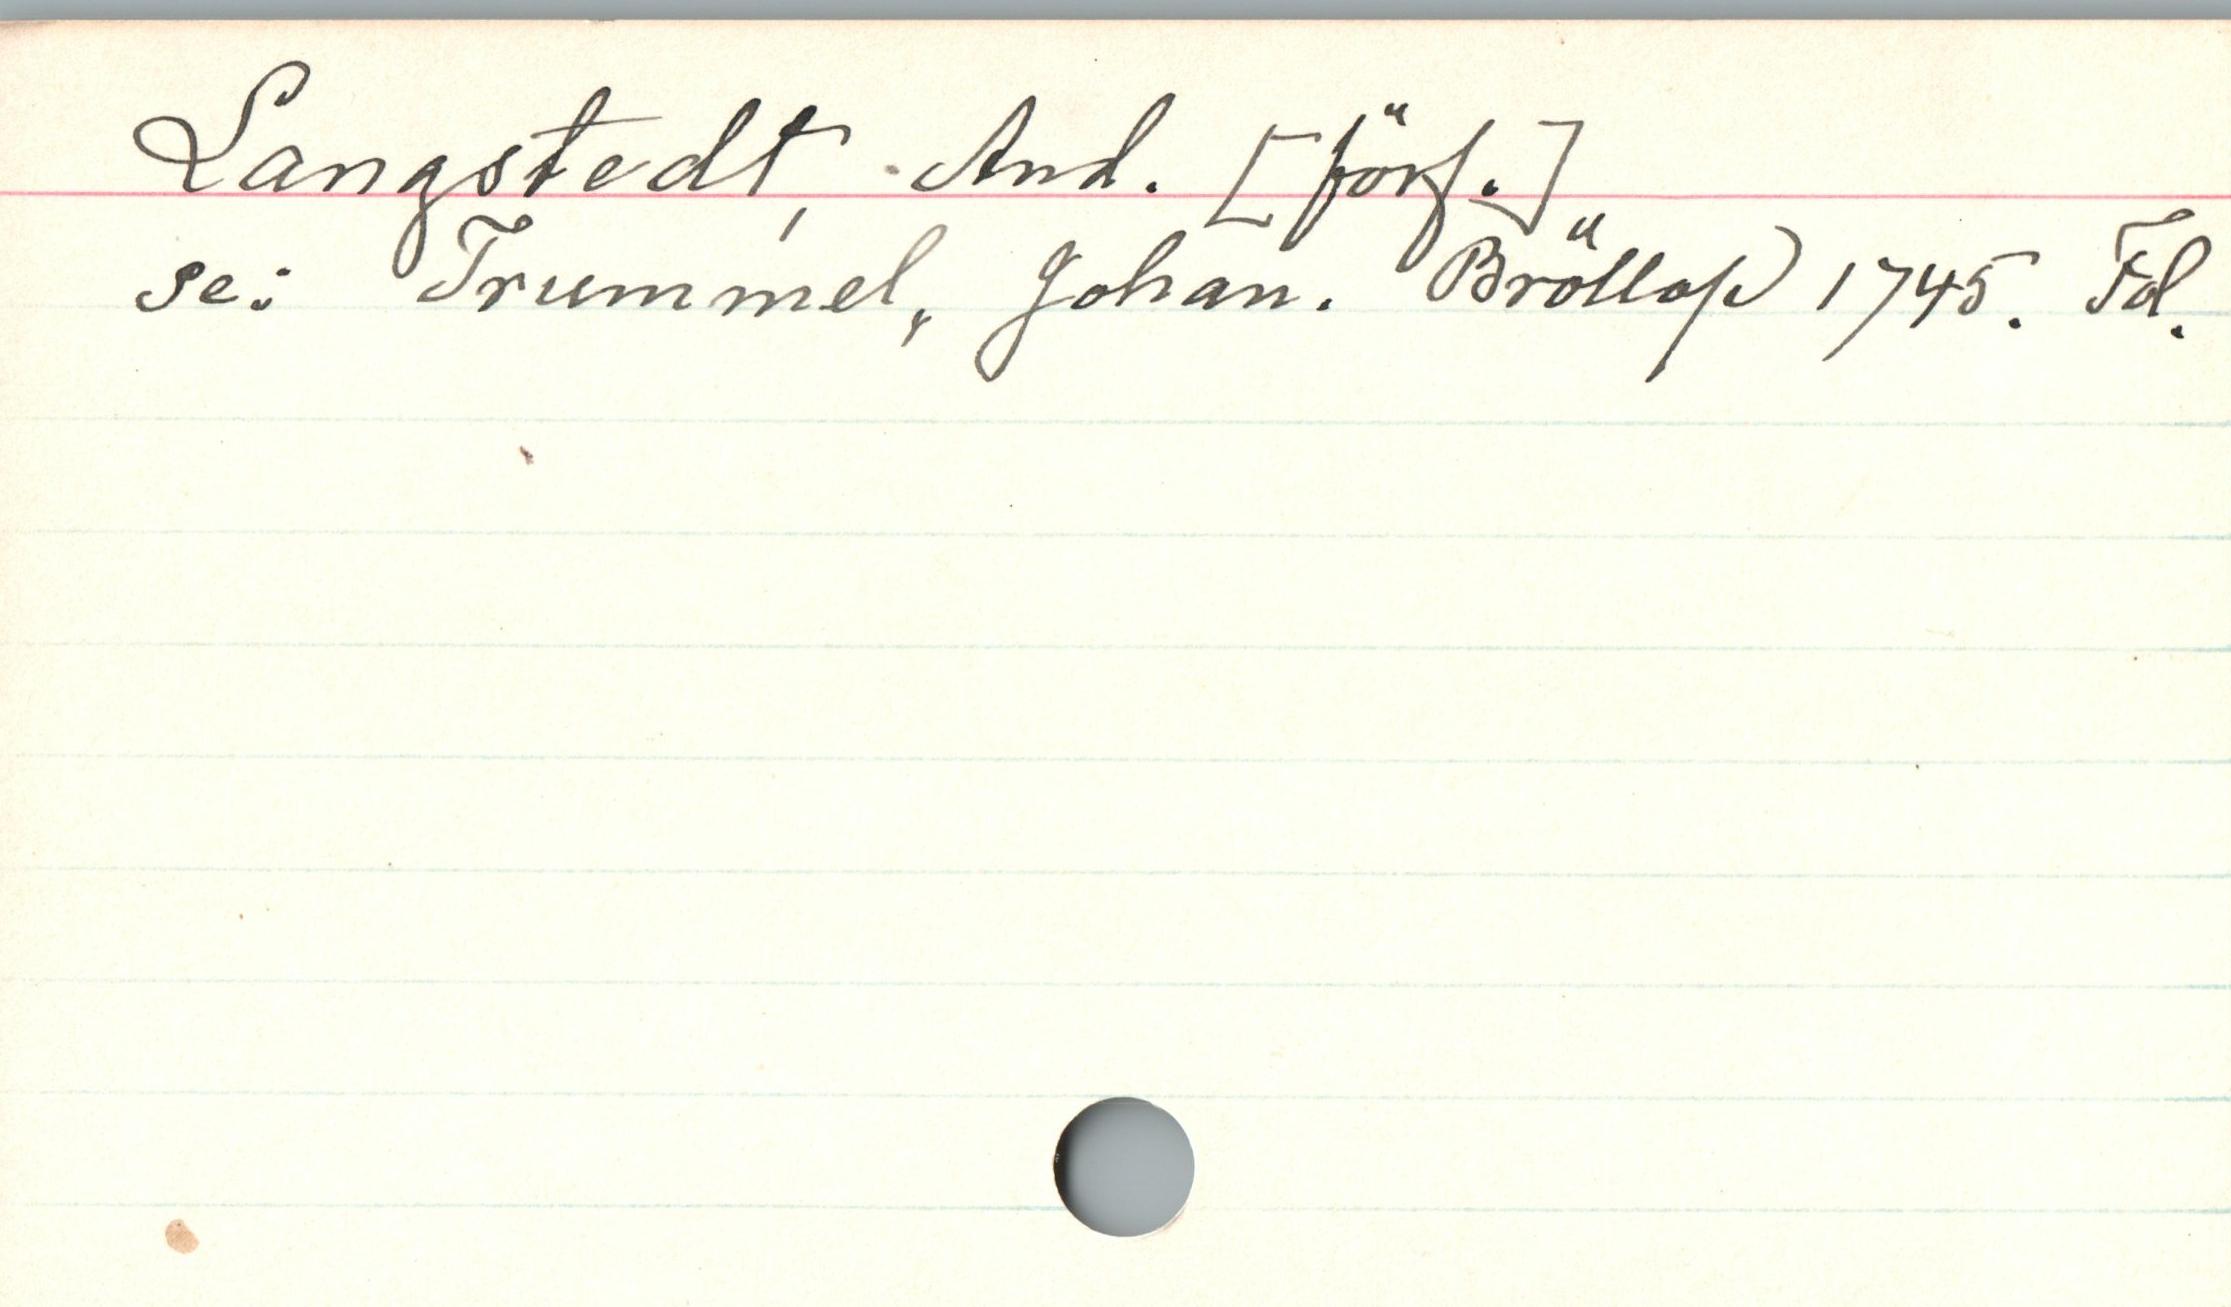 Langstedt, And. [förf.]
se: Trummel, Johan. Bröllop 1745. Fol.